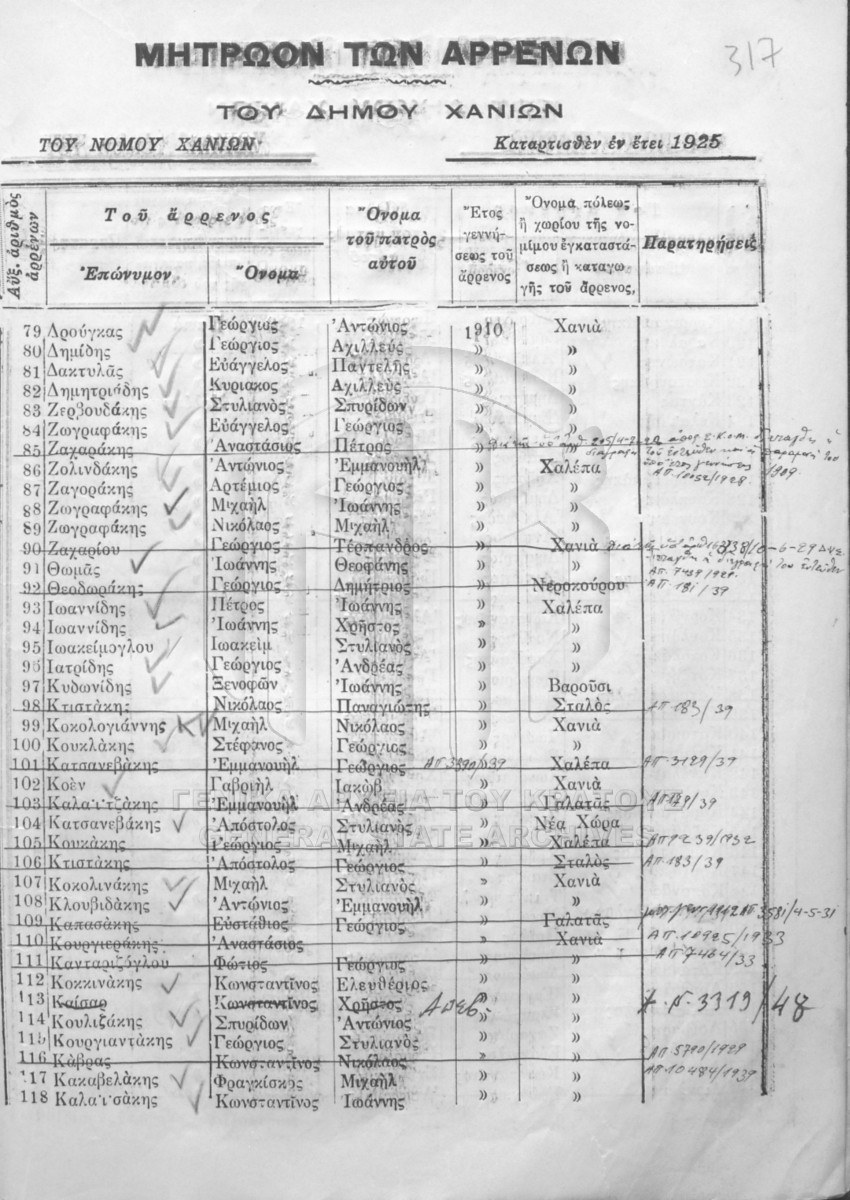 317
ΜΗΤΡΩΟΝ ΤΩΝ ΑΡΡΕΝΩΝ
ΤΟΥ ΔΗΜΟΥ ΧΑΝΙΩΝ
ΤΟΥ ΝΟΜΟΥ ΧΑΝΙΩΝ Καταρτισθὲν ἐν ἔτει 1925
Αὔξ. ἀριθμὸς ἀρρένων
Τοῦ ἄρρενος
Ἐπώνυμον Ὄνομα
Ὄνομα τοῦ πατρὸς αὐτοῦ
Ἔτος γεννήσεως τοῦ ἄρρενος
Ὄνομα πόλεως ἢ χωρίου τῆς νομίμου ἐγκαταστάσεως ἢ καταγωγῆς τοῦ ἄρρενος,
Παρατηρήσεις
79 Δρούγκας Γεώργιος Ἀντώνιος 1910 Χανιὰ
80 Δημίδης Γεώργιος Ἀχιλλεύς » »
81 Δακτυλᾶς Εὐάγγελος Παντελῆς » »
82 Δημητριάδης Κυριακος Ἀχιλλεὺς » »
83 Ζερβουδάκης Στυλιανὸς Σπυρίδων » »
84 Ζωγραφάκης Εὐάγγελος Γεώργιος » »
85 Ζαχαράκης Ἀναστάσιος Πέτρος »
86 Ζολινδάκης Ἀντώνιος Ἐμμανουὴλ » Χαλέπα ΑΠ. 10052/1928
87 Ζαγοράκης Ἀρτέμιος Γεώργιος » »
88 Ζωγραφάκης Μιχαὴλ Ἰωάννης » »
89 Ζωγραφάκης Νικόλαος Μιχαὴλ » »
90 Ζαχαρίου Γεώργιος Τέρπανδρος » Χανιὰ
91 Θωμᾶς Ἰωάννης Θεοφάνης » »
92 Θεοδωράκης Γεώργιος Δημήτριος » Νεροκούρου ΑΠ. 181/39
93 Ἰωαννίδης Πέτρος Ἰωάννης » Χαλέπα
94 Ἰωαννίδης Ἰωάννης Χρῆστος » »
95 Ἰωακείμογλου Ἰωακεὶμ Στυλιανὸς » »
96 Ἰατρίδης Γεώργιος Ἀνδρέας » »
97 Κυδωνίδης Ξενοφῶν Ἰωάννης » Βαροῦσι
98 Κτιστάκης Νικόλαος Παναγιώτης » Σταλός ΑΠ. 183/39
99 Κοκολογιάννης Μιχαὴλ Νικόλαος » Χανιὰ
100 Κουκλάκης Στέφανος Γεώργιος » »
101 Κατσανεβάκης Ἐμμανουὴλ Γεώργιος » Χαλέπα ΑΠ. 3129/39
102 Κοὲν Γαβριὴλ Ἰακὼβ » Χανιὰ
103 Καλαϊτζάκης Ἐμμανουὴλ Ἀνδρέας » Γαλατᾶς ΑΠ 179/39
104 Κατσανεβάκης Ἀπόστολος Στυλιανὸς » Νέα Χώρα
105 Κουκάκης Γεώργιος Μιχαὴλ » Χαλέπα
106 Κτιστάκης Ἀπόστολος Γεώργιος » Σταλὸς ΑΠ. 183/39
107 Κοκολινάκης Μιχαὴλ Στυλιανὸς » Χανιὰ
108 Κλουβιδάκης Ἀντώνιος Ἐμμανουὴλ » »
109 Καπασάκης Εὐστάθιος Γεώργιος » Γαλατᾶς
110 Κουργιεράκης Ἀναστάσιος » Χανιὰ ΑΠ. 10925/1933
111 Κανταρίζόγλου Φώτιος Γεώργιος » » ΑΠ 7464/33
112 Κοκκινάκης Κωνσταντῖνος Ἐλευθέριος » »
113 Καίσαρ Κωνσταντῖνος Χρῆστος Απεβ. » » 3319/48
114 Κουλιζάκης Σπυρίδων Ἀντώνιος » »
115 Κουργιαντάκης Γεώργιος Στυλιανὸς » »
116 Κάβρας Κωνσταντῖνος Νικόλαος » » ΑΠ 5790/1929
117 Κακαβελάκης Φραγκίσκος Μιχαὴλ » » ΑΠ. 10484/1939
118 Καλαϊσάκης Κωνσταντῖνος Ἰωάννης » »
ΓΕΝΙΚΑ ΑΡΧΕΙΑ ΤΟΥ ΚΡΑΤΟΥΣ
GENERAL STATE ARCHIVES